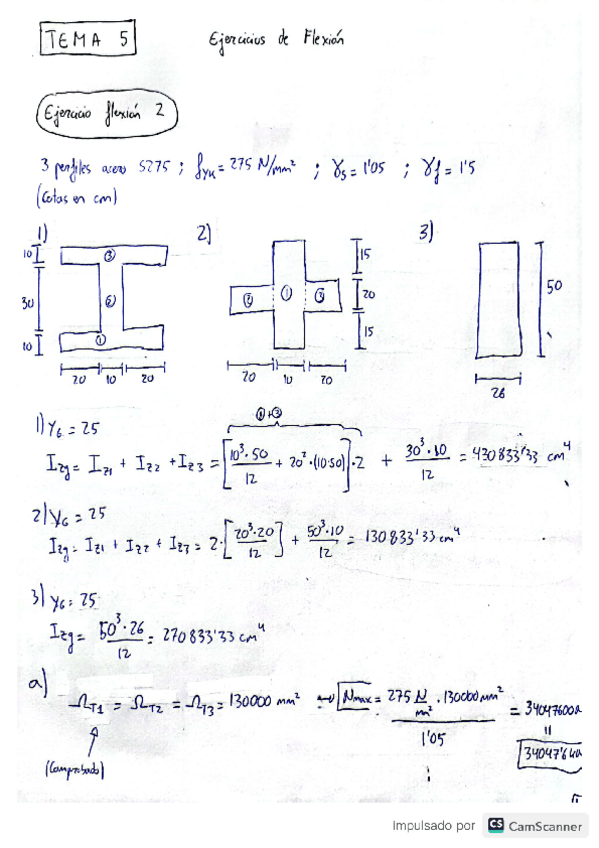 TEMA 5 Ejercicios de Flexión
Ejercicio flexión 2
3 perfiles acero S275 ; fyk = 275 N/mm² ; γs = 1'05 ; γf = 1'5
(Cotas en cm)
1) 2) 3)
10 ③ 15
30 ② ② ① ③ 20 50
10 ① 15
20 10 20 20 10 20 26
①+③
1) yG = 25
Izg = Iz1 + Iz2 + Iz3 = [10³·50/12 + 20²·(10·50)]·2 + 30³·10/12 = 430833'33 cm⁴
2) yG = 25
Izg = Iz1 + Iz2 + Iz3 = 2·[20³·20/12] + 50³·10/12 = 130833'33 cm⁴
3) yG = 25
Izg = 50³·26/12 = 270833'33 cm⁴
a) ΩT1 = ΩT2 = ΩT3 = 130000 mm² → Nmax = 275 N/mm² · 130000 mm² / 1'05 = 34047600
=
34047'6
(Comprobado)
Impulsado por CS CamScanner